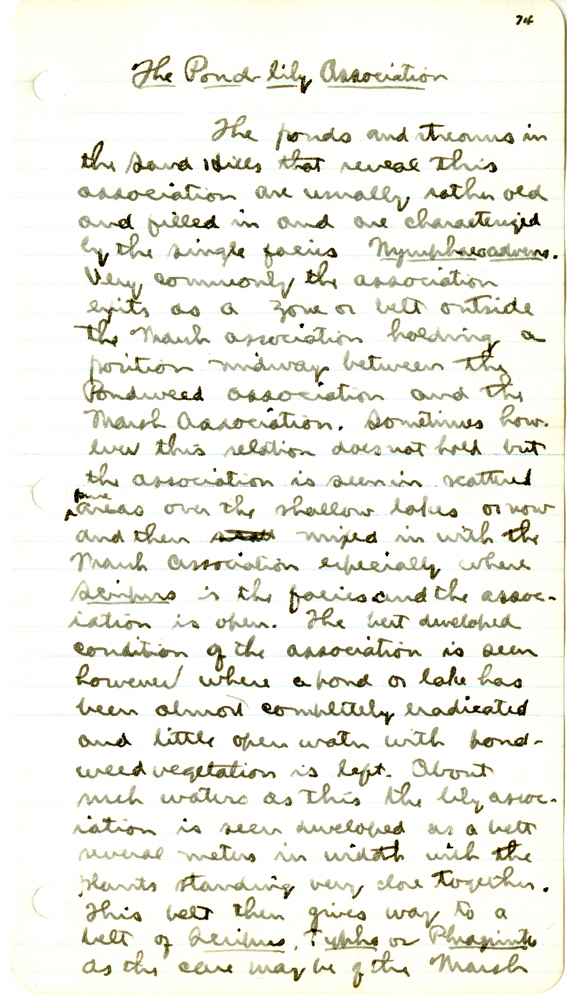 74
The Pond-lily Association
The ponds and streams in
the Sand Hills that reveal this
association are usually rather old
and filled in and are characterized
by the single facies Nymphaea advena.
Very commonly the association
exits as a zone or belt outside
the Marsh association holding a
position midway between the
Pondweed association and the
Marsh Association. Sometimes how-
ever this relation does not hold but
the association is seen in scattered
pure
areas over the shallow lakes or now
and then mixed in with the
Marsh Association especially where
Scirpus is the facies and the assoc-
iation is open. The best developed
condition of the association is seen
however where a pond or lake has
been almost completely eradicated
and little open water with pond-
weed vegetation is left. About
such waters as this the lily assoc-
iation is seen developed as a belt
several meters in width with the
plants standing very close together.
This belt then gives way to a
belt of Scirpus, Typha or Phragmites
as the case may be of the Marsh